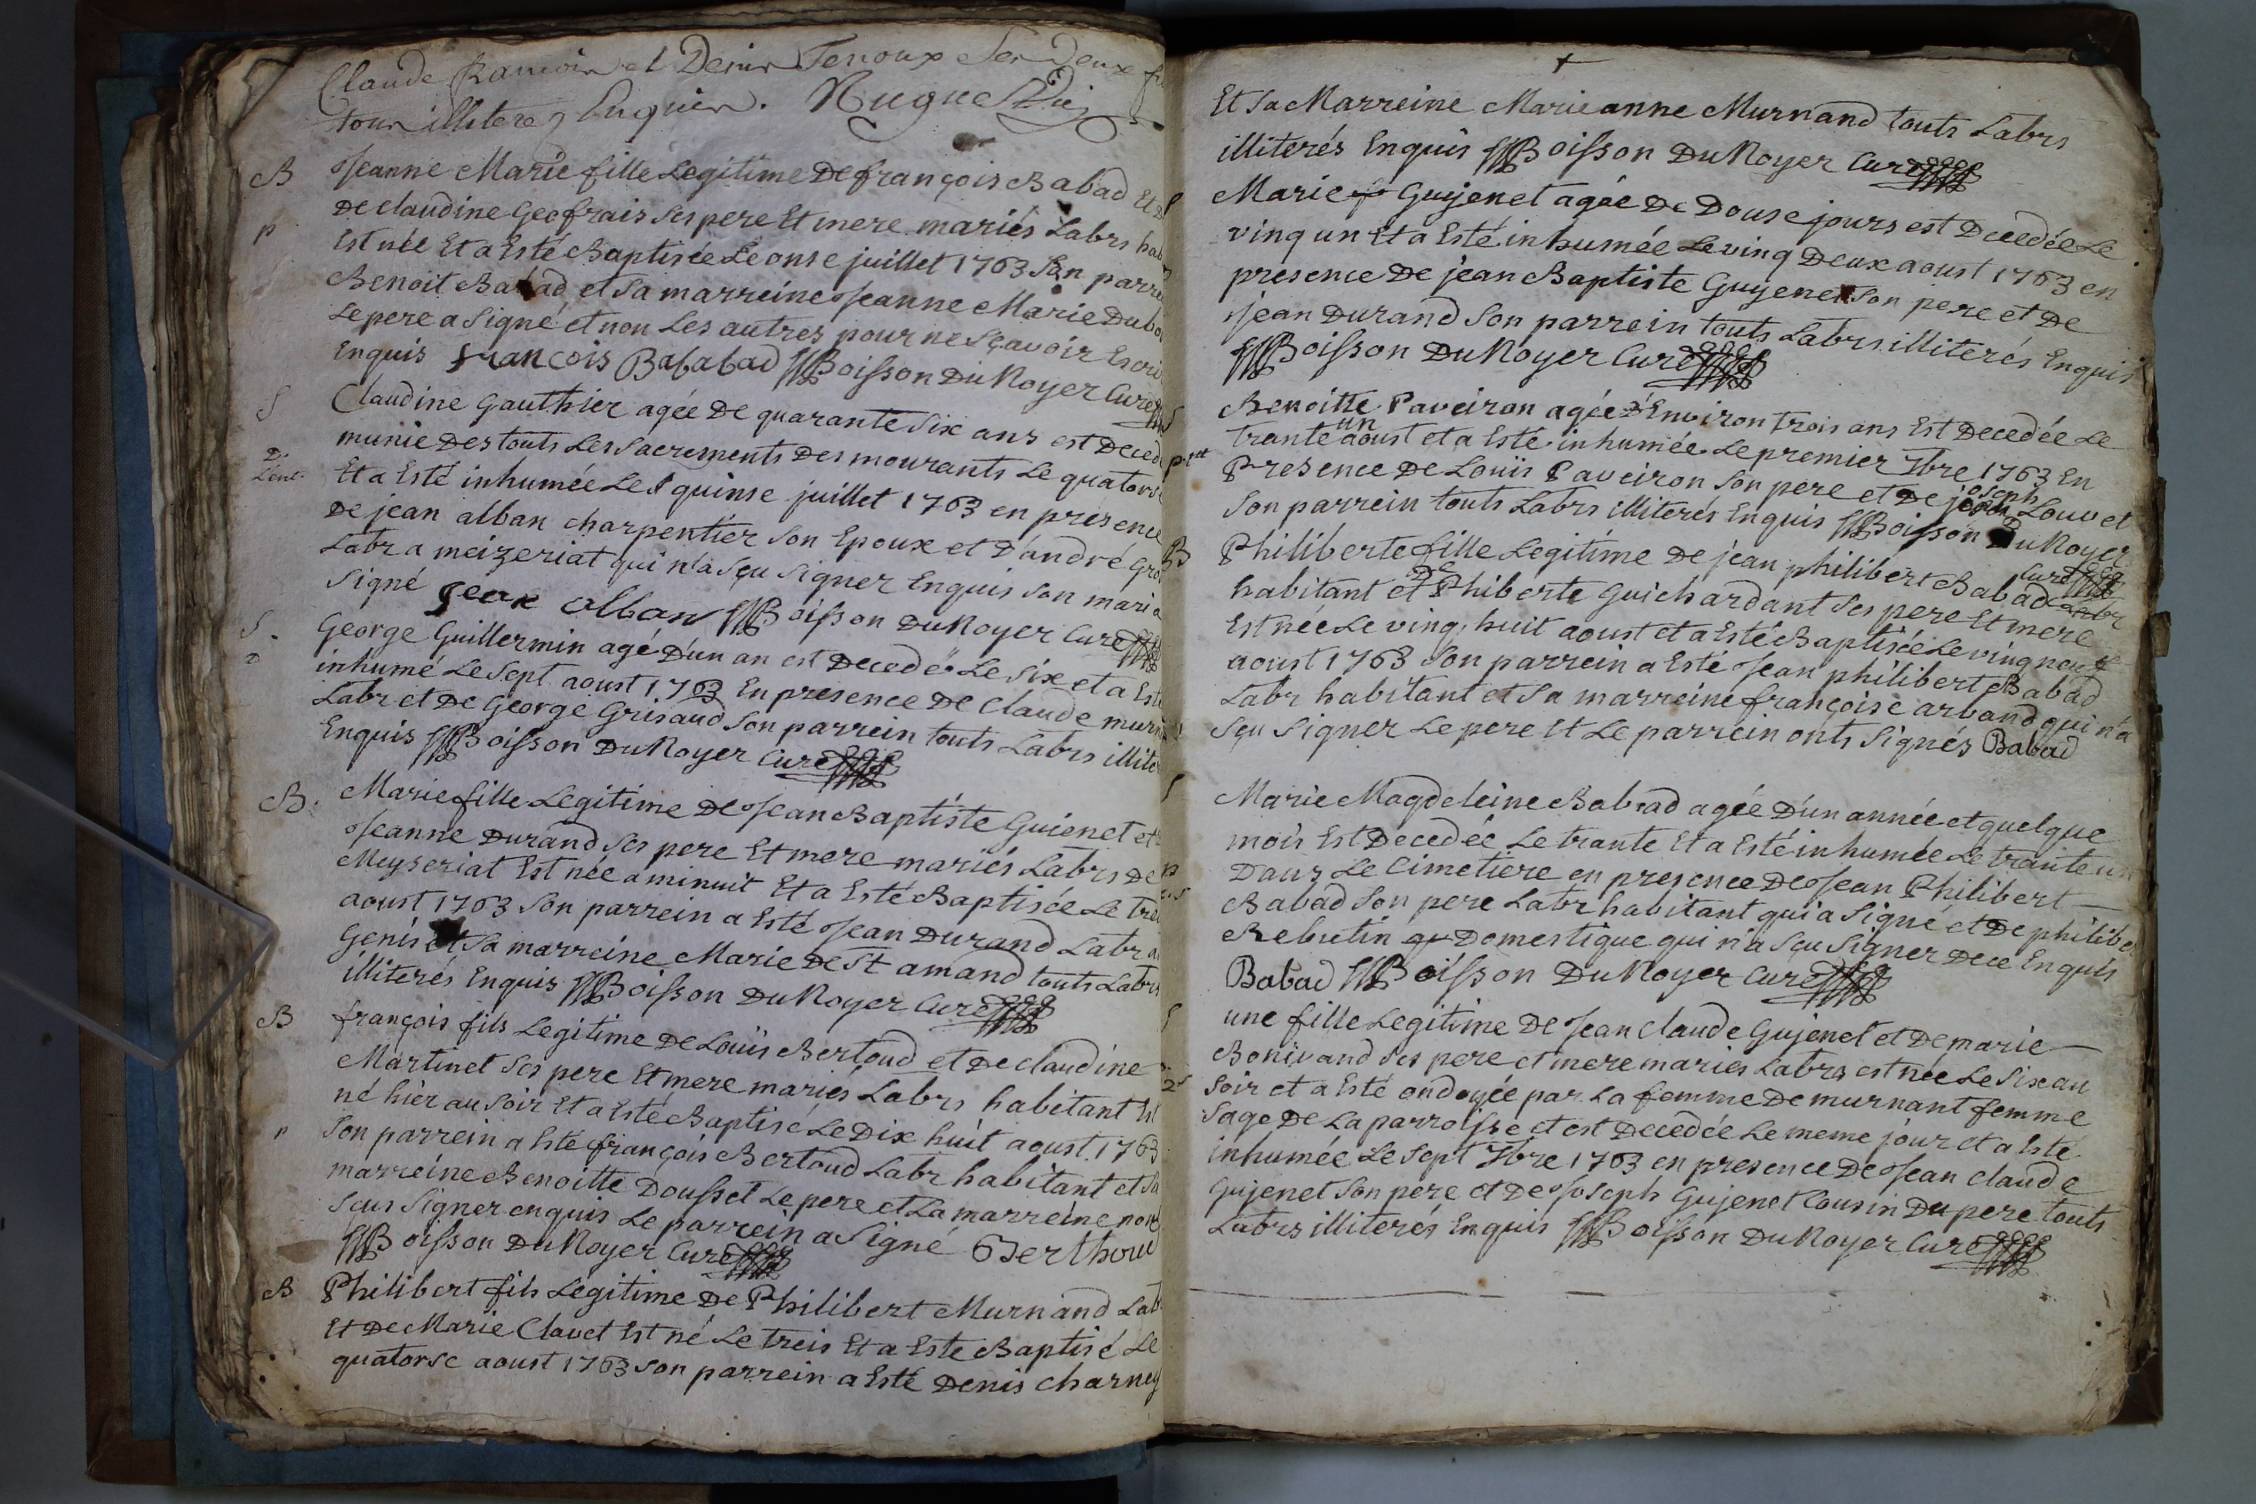 Claude et Denis Tenoux Ses Deux
tous illitere enquis.
B
Jeanne Marie fille Legitime De françois Babad Et
De claudine Geofrais ses pere Et mere mariés Labrs
p
Est née Et a Esté Baptisée Le onse juillet 1763 Son
Benoit Babad et Sa marreine Jeanne Marie
Le pere a Signé et non Les autres pour ne Sçavoir
Enquis françois Bababad Boisson Du Noyer Curé
S
Claudine Gauthier agée De quarante Six ans est
munie Des touts Les Sacrements Des mourants Le
Et a Esté inhumée Le quinse juillet 1763 en presence
De jean alban charpentier Son Epoux et D'andré
Labr a meizeriat qui n'a Sçu Signer Enquis Son mari a
Signé Jean alban Boisson Du Noyer Curé
S.
George Guillermin agé D'un an est Decedé Le Six et a Esté
inhumé Le Sept aoust 1763 En presence De Claude
Labr et De George Grisaud Son parrein touts Labrs
Enquis Boisson Du Noyer Curé
B.
Marie fille Legitime De Jean Baptiste Guienet et
Jeanne Durand ses pere Et mere mariés Labrs De
Meyseriat Est née a minuit Et a Esté Baptisée Le
aoust 1763 Son parrein a Esté Jean Durand Labr
Genis et Sa marreine Marie De St amand touts Labrs
illiterés Enquis Boisson Du Noyer Curé
B
françois fils Legitime De Loüis Bertoud et De claudine
Martinet Ses pere Et mere mariés Labrs habitant Est
né hier au Soir Et a Esté Baptisé Le Dix huit aoust 1763
p
Son parrein a Esté françois Bertoud Labr habitant et Sa
marreine Benoitte Dousset Le pere et La marreine
Sçus Signer enquis Le parrein a Signé
Boisson Du Noyer Curé
B
Philibert fils Legitime De Philibert Murnand
Et De Marie Clavet Est né Le treis Et a Este Baptisé Le
quatorse aoust 1763 Son parrein a Esté Denis
Et Sa Marreine Marie anne Murnand touts Labrs
illiterés Enquis Boisson Du Noyer Curé
Marie Gujenet agée De Douse jours est Decedée Le
vinq un Et a Esté inhumée Le vinq Deux aoust 1763 en
presence De jean Baptiste Guyenet Son pere et De
Jean Durand Son parrein touts Labrs illiterés Enquis
Boisson Du Noyer Curé
Benoitte Paveiron agée D'Environ trois ans Est Decedée Le
trante un aoust et a Esté inhumée Le premier 7bre 1763 En
Presence De Loüis Paveiron Son pere et De joseph Louvet
Son parrein touts Labrs illiterés Enquis Boisson Du Noyer
Curé
B
Philiberte fille Legitime De jean philibert Babad Labr
habitant et De Phiberte Guichardant Ses pere Et mere
Est née Le vinq huit aoust et a Esté Baptisée Le vinq neuf
aoust 1763 Son parrein a Esté Jean philibert Babad
Labr habitant et Sa marreine françoise arband qui n'a
Sçu Signer Le pere Et Le parrein onts Signés Babad
Marie Magdeleine Babad agée D'un année et quelque
mois Est Decedée Le trante Et a Esté inhumée Le trante un
Dans Le Cimetiere en presence De Jean Philibert
Babad Son pere Labr habitant qui a Signé et De
Rebutin Domestique qui n'a Sçu Signer De ce Enquis
Babad Boisson Du Noyer Curé
une fille Legitime De Jean Claude Gujenet et De marie
Bonivand ses pere et mere mariés Labrs est née Le Six au
Soir et a Esté ondoyée par La femme De murnant femme
Sage De La parroisse et est Decedée Le meme jour et a Esté
inhumée Le Sept 7bre 1763 en presence De Jean Claude
Gujenet Son pere et De Joseph Gujenet Cousin Du pere touts
Labrs illiterés Enquis Boisson Du Noyer Curé